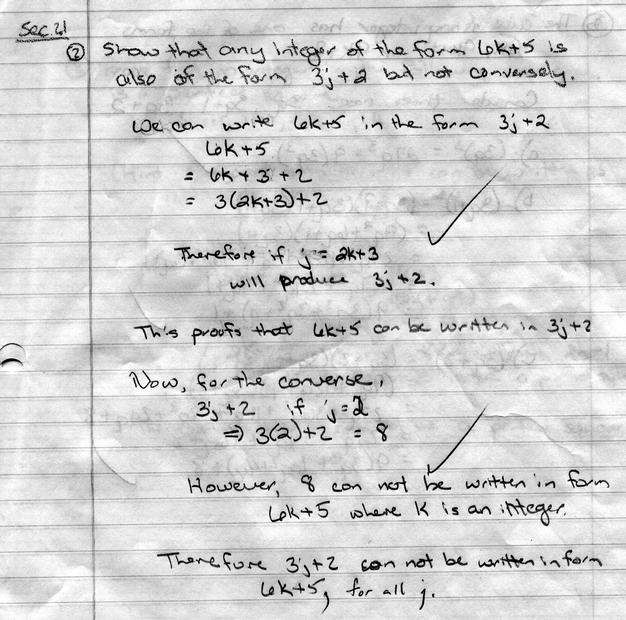 Sec. 21
② Show that any integer of the form 6k+5 is
also of the form 3j+2 but not conversely.
We can write 6k+5 in the form 3j+2
6k+5
= 6k + 3 + 2
= 3(2k+3)+2
Therefore if j = 2k+3
will produce 3j+2.
This proofs that 6k+5 can be written in 3j+2
Now, for the converse,
3j+2 if j=2
⇒ 3(2)+2 = 8
However, 8 can not be written in form
6k+5 where k is an integer.
Therefore 3j+2 can not be written in form
6k+5, for all j.